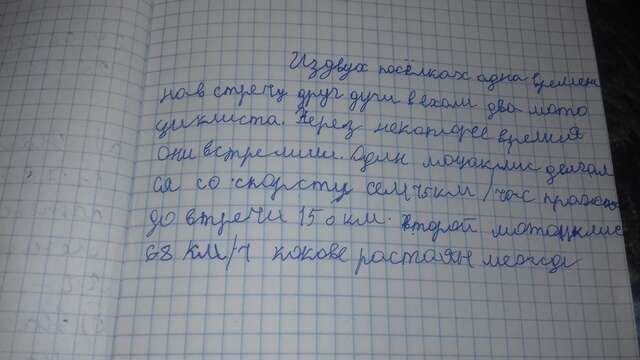 Из двух посёлках одна времене
на в стречу друг души в ехоли два мото
циклиста. Через некоторее время
они встретили. Один моцаклис делгал
са со скорсту сем 75 км/час проехо
до встречи 150 км. второй мотоцклис
68 км/ч кокове растаян межди